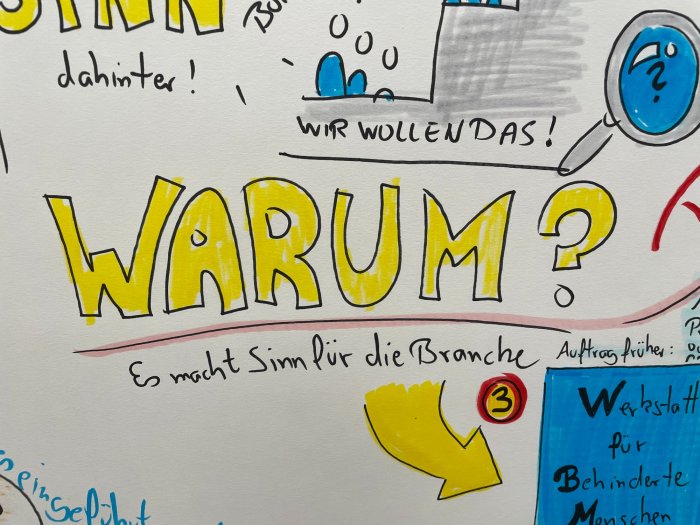 SINN
dahinter!
WIR WOLLEN DAS!
?
WARUM?
Es macht Sinn für die Branche
Auftrag früher:
3
Werkstatt
für
Behinderte
Menschen
ein
Gefühl